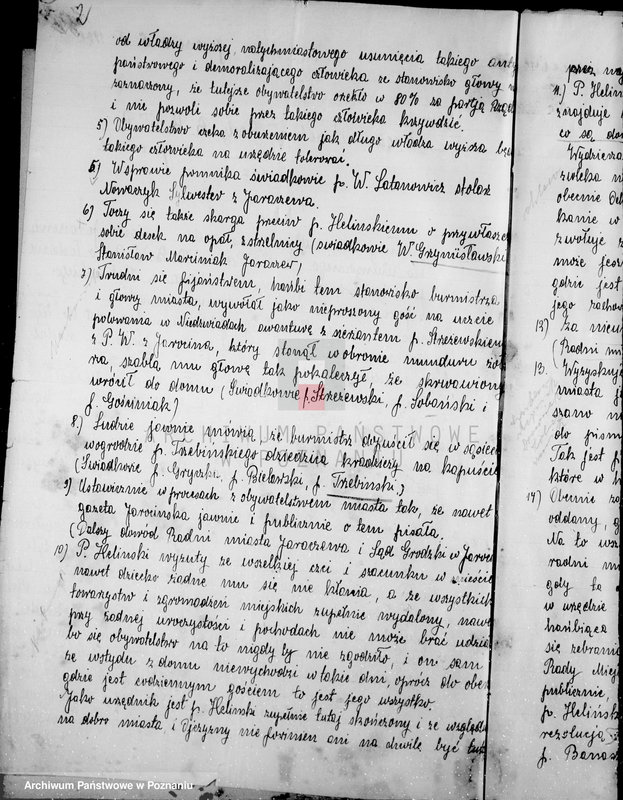 2
od władzy wyższej, natychmiastowego usunięcia takiego anty
państwowego i demoralizającego człowieka ze stanowiska głowy
zaznaczony, że tutejsze obywatelstwo orzekło w 80% za partją Rząd
i nie pozwoli sobie przez takiego człowieka krzywdzić.
5) Obywatelstwo czeka z oburzeniem jak długo władza wyższa bę
takiego człowieka na urzędzie tolerować.
5) W sprawie pomnika świadkowie p. W. Latanowicz stolarz
Nowaczyk Sylwester z Jaraczewa.
6) Toczy się także skarga przeciw p. Helińskiemu o przywłaszcz
sobie desek na opał, z strzelnicy (świadkowie W. Grzymisławski
Stanisław Marciniak Jaraczew)
7) Trudni się pijaństwem, hańbi tem stanowisko burmistrza
i głowy miasta, wywołał jako nieproszony gość na uczcie
polowania w Niedzwiadach awanturę z sierżantem p. Strzezewskiem
z P. W. z Jarocina, który stanął w obronie munduru żoł
rza, szablą mu głowę tak pokaleczył, że skrwawiony
wrócił do domu (Świadkowie p. Strzezewski, p. Sobański i
p. Gościniak)
8.) Ludzie jawnie mówią że burmistrz dopuścił się w sąsiec
wogrodzie p. Trzebińskiego dziedzica kradzieży na kapuście
(Świadkowie p. Gryczki, p. Bielawski, p. Trzebiński.)
9) Ustawicznie w procesach z obywatelstwem miasta tak, że nawet
gazeta Jarocińska jawnie i publicznie o tem pisała.
(Dalszy dowód Radni miasta Jaraczewa i Sąd Grodzki w Jaroci
10) P. Heliński wyzuty ze wszelkiej czci i szacunku w mieście
nawet dziecko żadne mu się nie kłania, a ze wszystkich
towarzystw i zgromadzeń miejskich zupełnie wydalony, nawe
przy żadnej uroczystości i pochodach nie może brać udzia
bo się obywatelstwo na to nigdy by nie zgodziło, i on sam
ze wstydu z domu niewychodzi w takie dni, oprócz do ober
gdzie jest codziennym gościem to jest jego wszystko.
Jako urzędnik jest p. Heliński zupełnie tutaj skończony i ze względ
na dobro miasta i Ojczyzny nie powinien ani na chwilę być
przez
11) P. Helin
znajduje
co są do
Wydzierża
zwleka
obecnie
kanie w
zwołuje
może jesz
gdzie jest
jego zacho
12) Za nieu
(Radni mi
13. Wyzyskuje
miasta
szano
do pism
Tak jest
które w
14) Obecnie za
oddany,
Na to wsz
radni
gdy ta
w urzędzie
hańbiąca
się zebrani
Rady Miej
publicznie,
p. Helińsk
rezolucją
p. Banas
ARCHIWUM PAŃSTWOWE
W POZNANIU
Archiwum Państwowe w Poznaniu